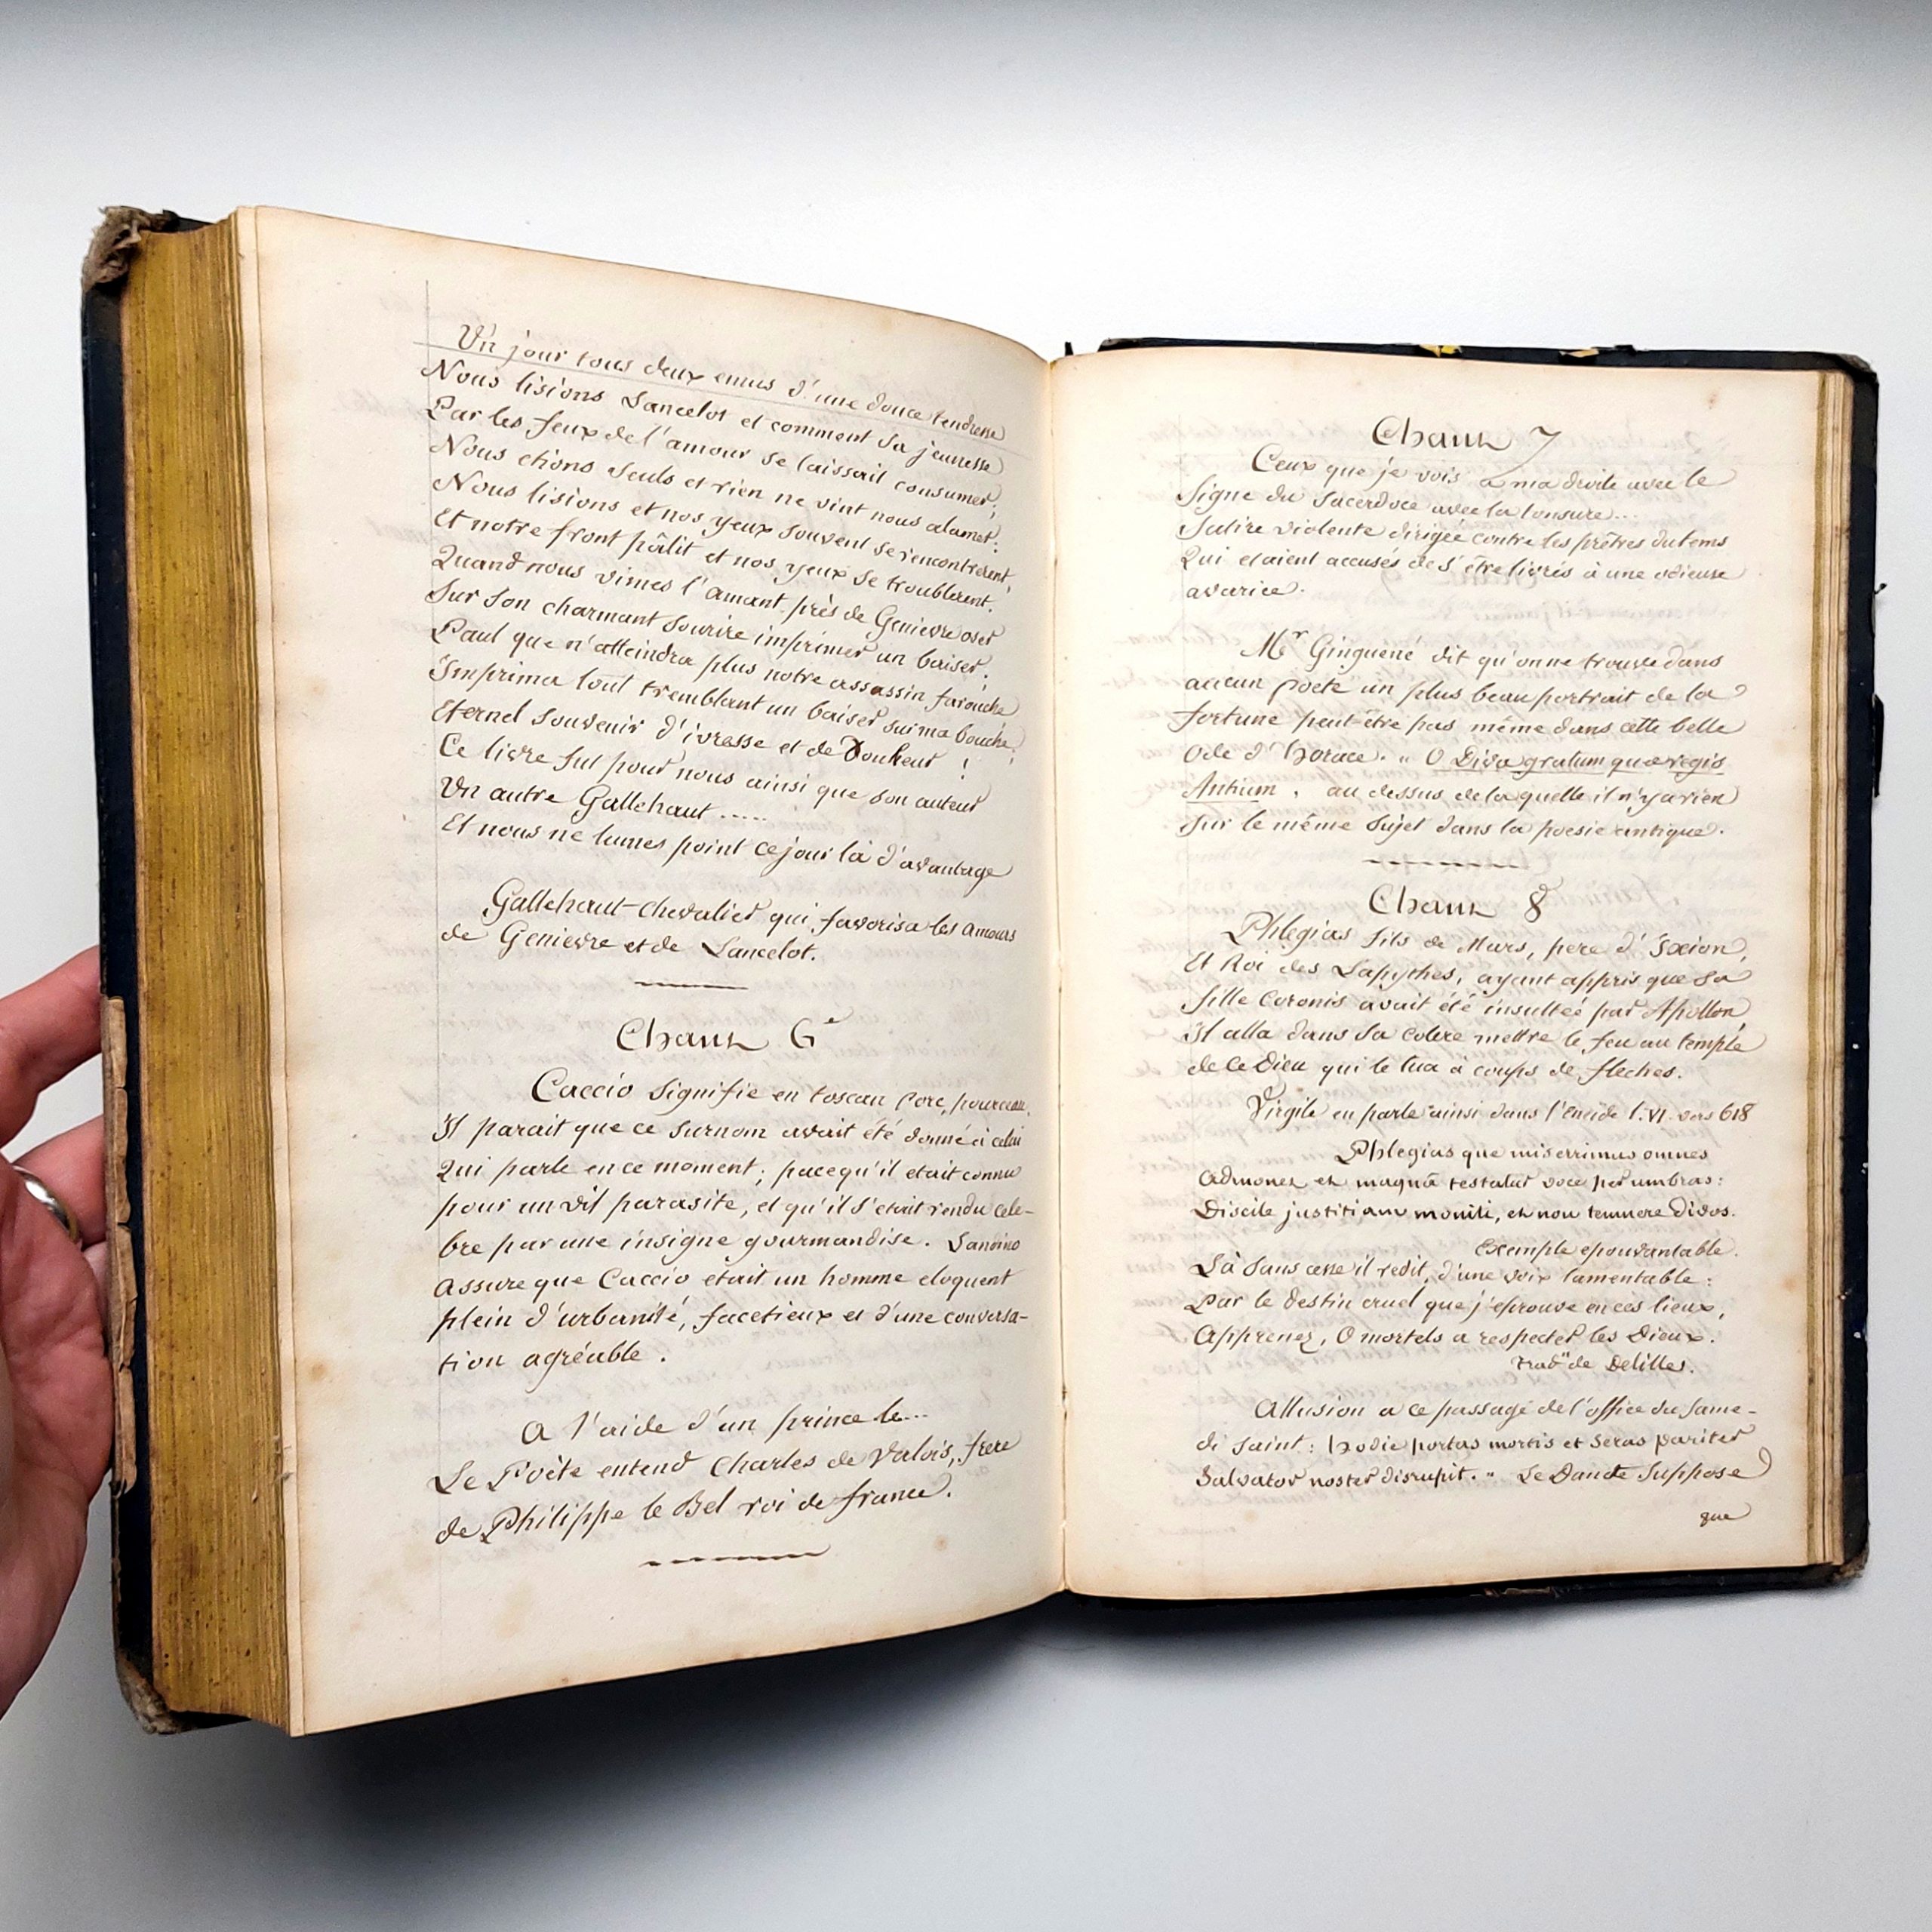 Un jour tous deux emus d'une douce tendresse
Nous lisions Lancelot et comment sa jeunesse
Par les feux de l'amour se laissait consumer;
Nous etions seuls et rien ne vint nous alarmer:
Nous lisions et nos yeux souvent se rencontrerent,
Et notre front pâlit et nos yeux se troublerent.
Quand nous vimes l'amant près de Genievre oser
Sur son charmant sourire imprimer un baiser;
Paul que n'atteindra plus notre assassin farouche
Imprima tout tremblant un baiser sur ma bouche;
Eternel souvenir d'ivresse et de !
Ce livre fut pour nous ainsi que son auteur
Un autre Gallehaut .....
Et nous ne lumes point ce jour là d'avantage
Gallehaut chevalier qui favorisa les amours
de Genievre et de Lancelot.
Chant 6e
Caccio signifie en toscan Porc, pourceau.
Il parait que ce surnom avait été donné à celui
Qui parle en ce moment; pacequ'il etait connu
pour un vil parasite, et qu'il s'etait rendu cele-
bre par une insigne gourmandise. Landino
Assure que Caccio était un homme eloquent
plein d'urbanité, facetieux et d'une conversa-
tion agréable.
A l'aide d'un prince le...
Le Poète entend Charles de Valois, frere
de Philippe le Bel roi de france.
Chant 7
Ceux que je vois a ma droite avec le
Signe du Sacerdoce avec la tonsure...
Satire violente dirigée contre les prêtres du tems
Qui etaient accusés de s'être livrés à une odieuse
avarice.
Mr Ginguéné dit qu'on ne trouve dans
aucun poete un plus beau portrait de la
fortune peut-être pas même dans cette belle
Ode d'Horace. " O Diva gratum quæ regis
Antium , au dessus de laquelle il n'y a rien
sur le même sujet dans la poesie antique.
Chant 8
Phlegias fils de Mars, pere d'Ixion,
Et Roi des Lapythes, ayant appris que sa
fille Coronis avait été insultée par Apollon
Il alla dans sa colere mettre le feu au temple
de ce Dieu qui le tua à coups de fleches.
Virgile en parle ainsi dans l'eneide l. VI. vers 618
Phlegias que miserrimus omnes
Admonet et magnâ testatur voce per umbras:
Discite justitiam moniti, et non temnere Divos.
Exemple epouvantable.
Là sans cesse il redit, d'une voix lamentable:
Par le destin cruel que j'eprouve en ces lieux,
Apprenez, O mortels a respecter les Dieux.
trad.n de Delilles.
Allusion a ce passage de l'office du same-
di saint: hodie portas mortis et seras pariter
Salvator noster disrupit. " Le Dante suppose
que